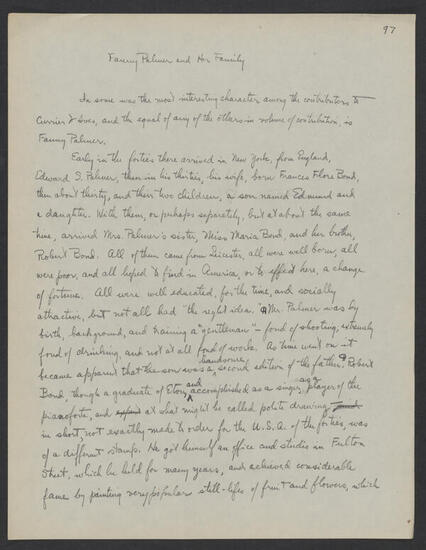 97
Fanny Palmer and Her Family
In some was the most interesting character among the contributors to
Currier & Ives, and the equal of any of the others in volume of contribution, is
Fanny Palmer.
Early in the forties there arrived in New York, from England,
Edward S. Palmer, then in his thirties, his wife, born Frances Flora Bond,
then about thirty, and their two children, a son named Edmund and
a daughter. With them, or perhaps separately, but at about the same
time, arrived Mrs. Palmer's sister, Miss Maria Bond, and her brother,
Robert Bond. All of them came from Leicester, all were well born, all
were poor, and all hoped to find in America, or to effect here, a change
of fortune. All were well educated, for the time, and socially
attractive, but not all had "the right idea." Mr. Palmer was by
birth, background, and training a "gentleman" – fond of shooting, extremely
fond of drinking, and not at all fond of work. As time went on it
became apparent that the son was a handsome second edition of the father. Robert
Bond, though a graduate of Eton and accomplished as a singer, as a player of the
pianoforte, and at what might be called polite drawing
in short, not exactly made to order for the U.S.A. of the forties, was
of a different stamp. He got himself an office and studio in Fulton
Street, which he held for many years, and achieved considerable
fame by painting very popular still-lifes of fruit and flowers, which